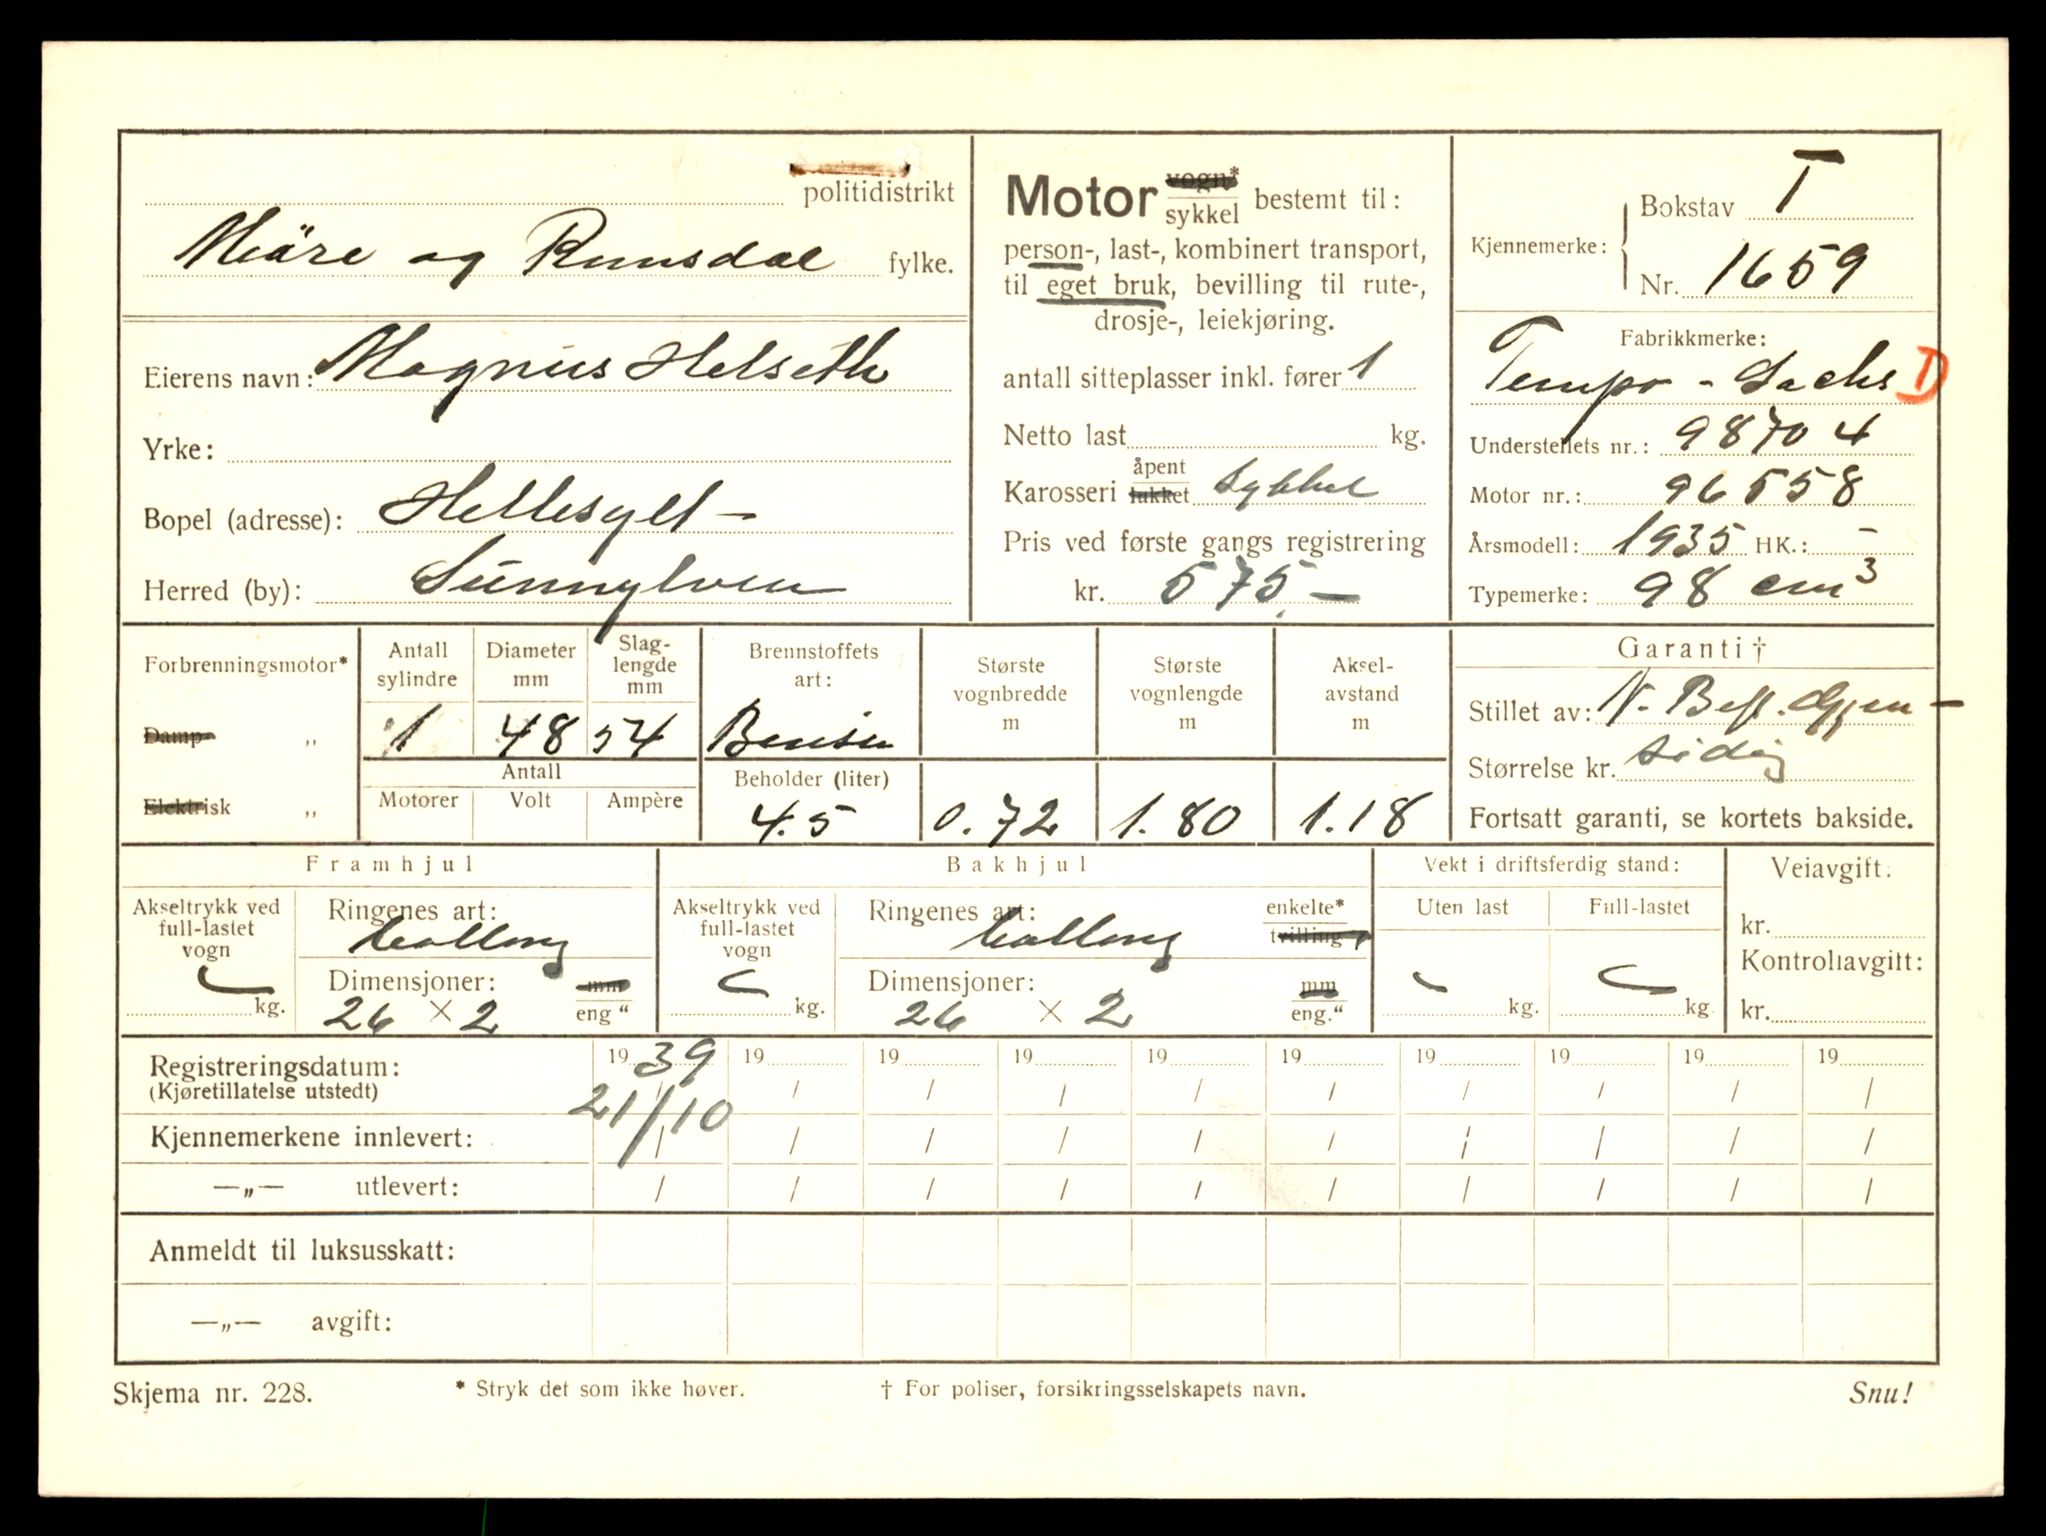 politidistrikt
Møre og Romsdal fylke.
Eierens navn: Magnus Helseth
Yrke:
Bopel (adresse): Hellesylt -
Herred (by): Sunnylven
Motor vogn* sykkel bestemt til:
person-, last-, kombinert transport,
til eget bruk, bevilling til rute-,
drosje-, leiekjøring.
antall sitteplasser inkl. fører 1
Netto last kg.
Karosseri åpent lukket Sykkel
Pris ved første gangs registrering
kr. 575,-
Kjennemerke: Bokstav T
Nr. 1659
Fabrikkmerke:
Tempo - Sachs D
Understellets nr.: 98704
Motor nr.: 96558
Årsmodell: 1935 HK.: -
Typemerke: 98 cm3
Forbrenningsmotor*
Damp „
Elektrisk „
Antall sylindre Diameter mm Slag-lengde mm
1 48 54
Antall
Motorer Volt Ampère
Brennstoffets art:
Bensin
Beholder (liter)
4.5
Største vognbredde m
0.72
Største vognlengde m
1.80
Aksel-avstand m
1.18
Garanti †
Stillet av: N.
Størrelse kr.
Fortsatt garanti, se kortets bakside.
Framhjul
Akseltrykk ved full-lastet vogn
kg.
Ringenes art: ballong
Dimensjoner: mm
26 × 2 eng "
Bakhjul
Akseltrykk ved full-lastet vogn
kg.
Ringenes art: ballong enkelte* tvilling
Dimensjoner: mm
26 × 2 eng."
Vekt i driftsferdig stand:
Uten last Full-lastet
kg. kg
Veiavgift:
kr.
Kontrollavgift:
kr.
Registreringsdatum: 1939 19 19 19 19 19 19 19 19 19
(Kjøretillatelse utstedt) 21/10 / / / / / / / / /
Kjennemerkene innlevert: / / / / / / / / / /
—„— utlevert: / / / / / / / / / /
Anmeldt til luksusskatt:
—„— avgift:
Skjema nr. 228. * Stryk det som ikke høver. † For poliser, forsikringsselskapets navn. Snu!